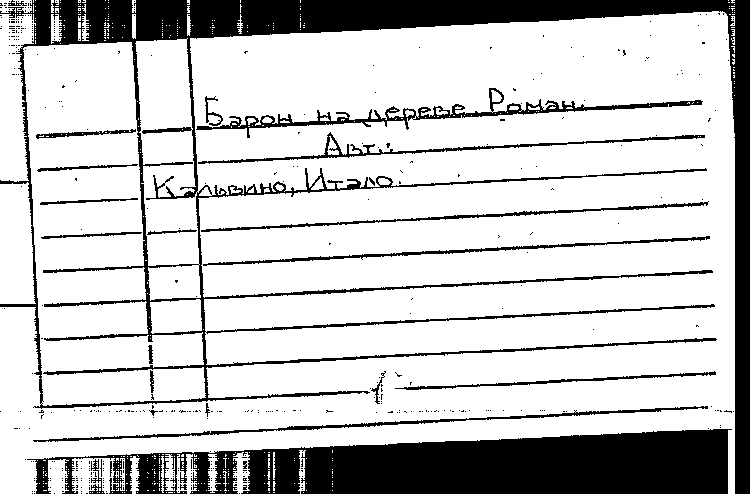 Барон на дереве. Роман.
Авт.:
Кальвино, Итало.